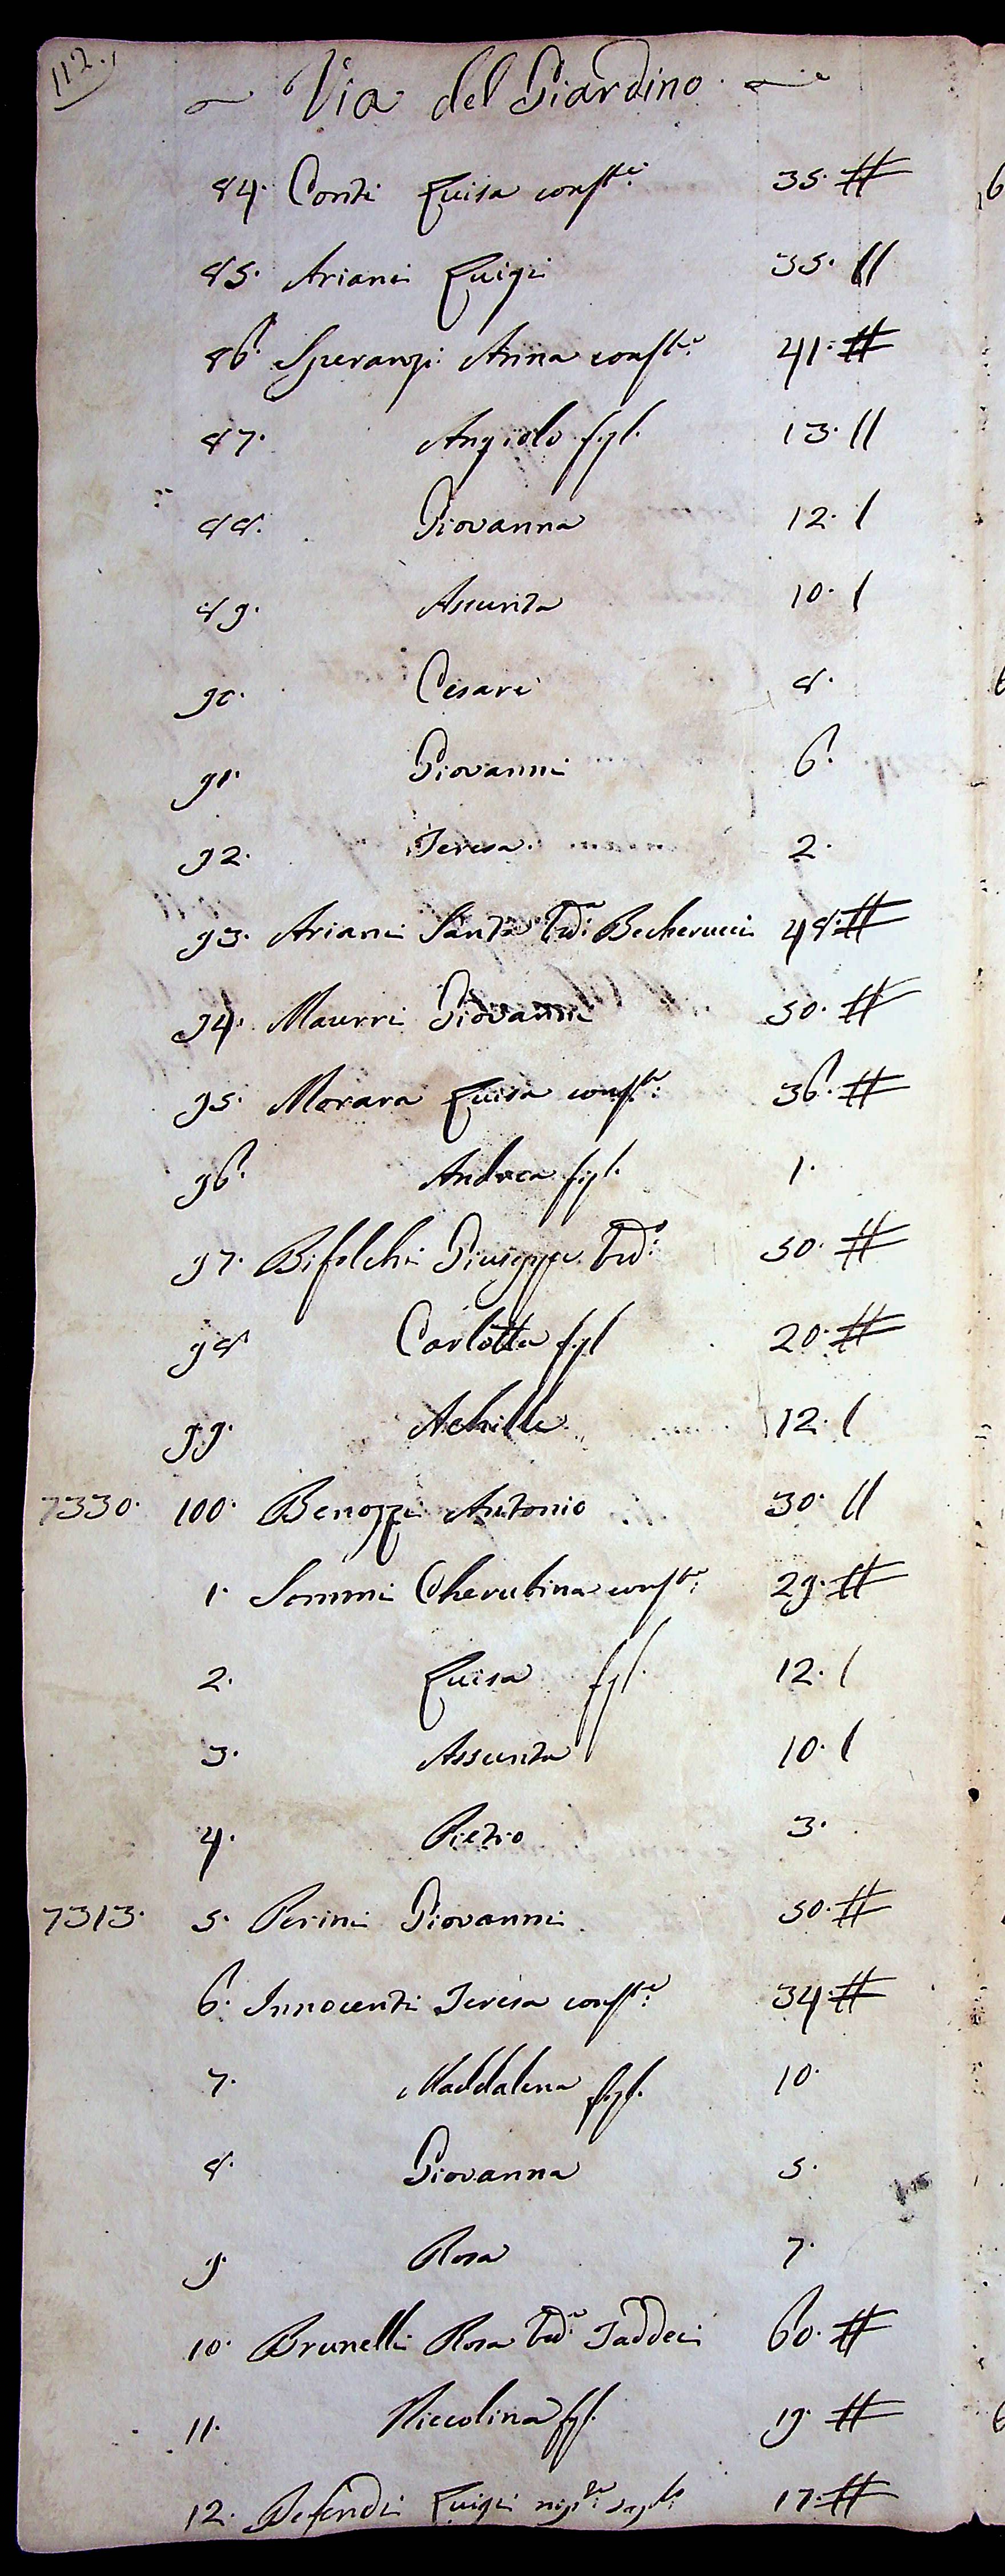 112.
Via del Giardino
84. Conti Luisa conste: 35. #
85. Ariani Luigi 35. //
86. Speranzi Anna conste: 41. #
87. Angiolo figl. 13. //
88. Giovanna 12. /
89. Assunta 10. /
90. Cesare 8.
91. Giovanni 6.
92. Teresa 2.
93. Ariani Santa Vda: Becherucci 48. #
94. Maurri Giovanni 50. #
95. Morara Luisa conste: 36. #
96. Andrea figl. 1.
97. Bifolchi Giuseppe Vdo: 50. #
98 Carlotta figl 20. #
99. Achille 12. /
7330. 100. Benozzi Antonio 30. //
1. Sommi Cherubina conste: 29. #
2. Luisa figl. 12. /
3. Assunta 10. /
4. Pietro 3.
7313. 5. Perini Giovanni 50. #
6. Innocenti Teresa conste: 34. #
7. Maddalena figl. 10.
8. Giovanna 5.
9. Rosa 7.
10. Brunelli Rosa Vda: Taddei 60. #
11. Niccolina figl. 19. #
12. Defendi Luigi 17. #